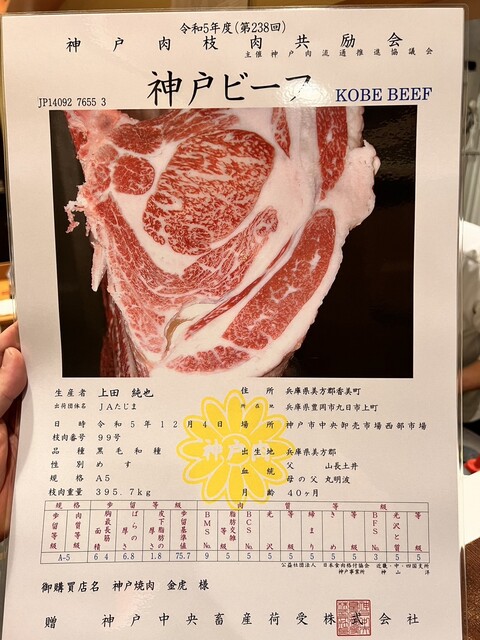 令和5年度(第238回)
神戸肉枝肉共励会
主催神戸肉流通推進協議会
神戸ビーフ KOBE BEEF
JP14092 7655 3
生産者 上田 純也 住所 兵庫県美方郡香美町
出荷団体名 JAたじま 所在地 兵庫県豊岡市九日市上町
日時 令和5年12月4日 場所 神戸市中央卸売市場西部市場
枝肉番号 99号
品種 黒毛和種 出生地 兵庫県美方郡
性別 めす 血統 父 山長土井
規格 A5 母の父 丸明波
枝肉重量 395.7kg 月齢 40ヶ月
神戸肉
規格 歩留等級 肉質等級
歩留等級 肉質等級 胸最長筋面積 ばらの厚さ 皮下脂肪の厚さ 歩留基準値 BMS No. 脂肪交雑等級 BCS No. 光沢 等級 締まり きめ 等級 BFS No. 光沢と質 等級
A-5 64 6.8 1.8 75.7 9 5 5 5 5 5 5 5 3 5 5
公益社団法人 日本食肉格付協会 近畿・中・四国支所
神戸事業所 神山 洋
御購買店名 神戸焼肉 金虎 様
贈 神戸中央畜産荷受株式会社